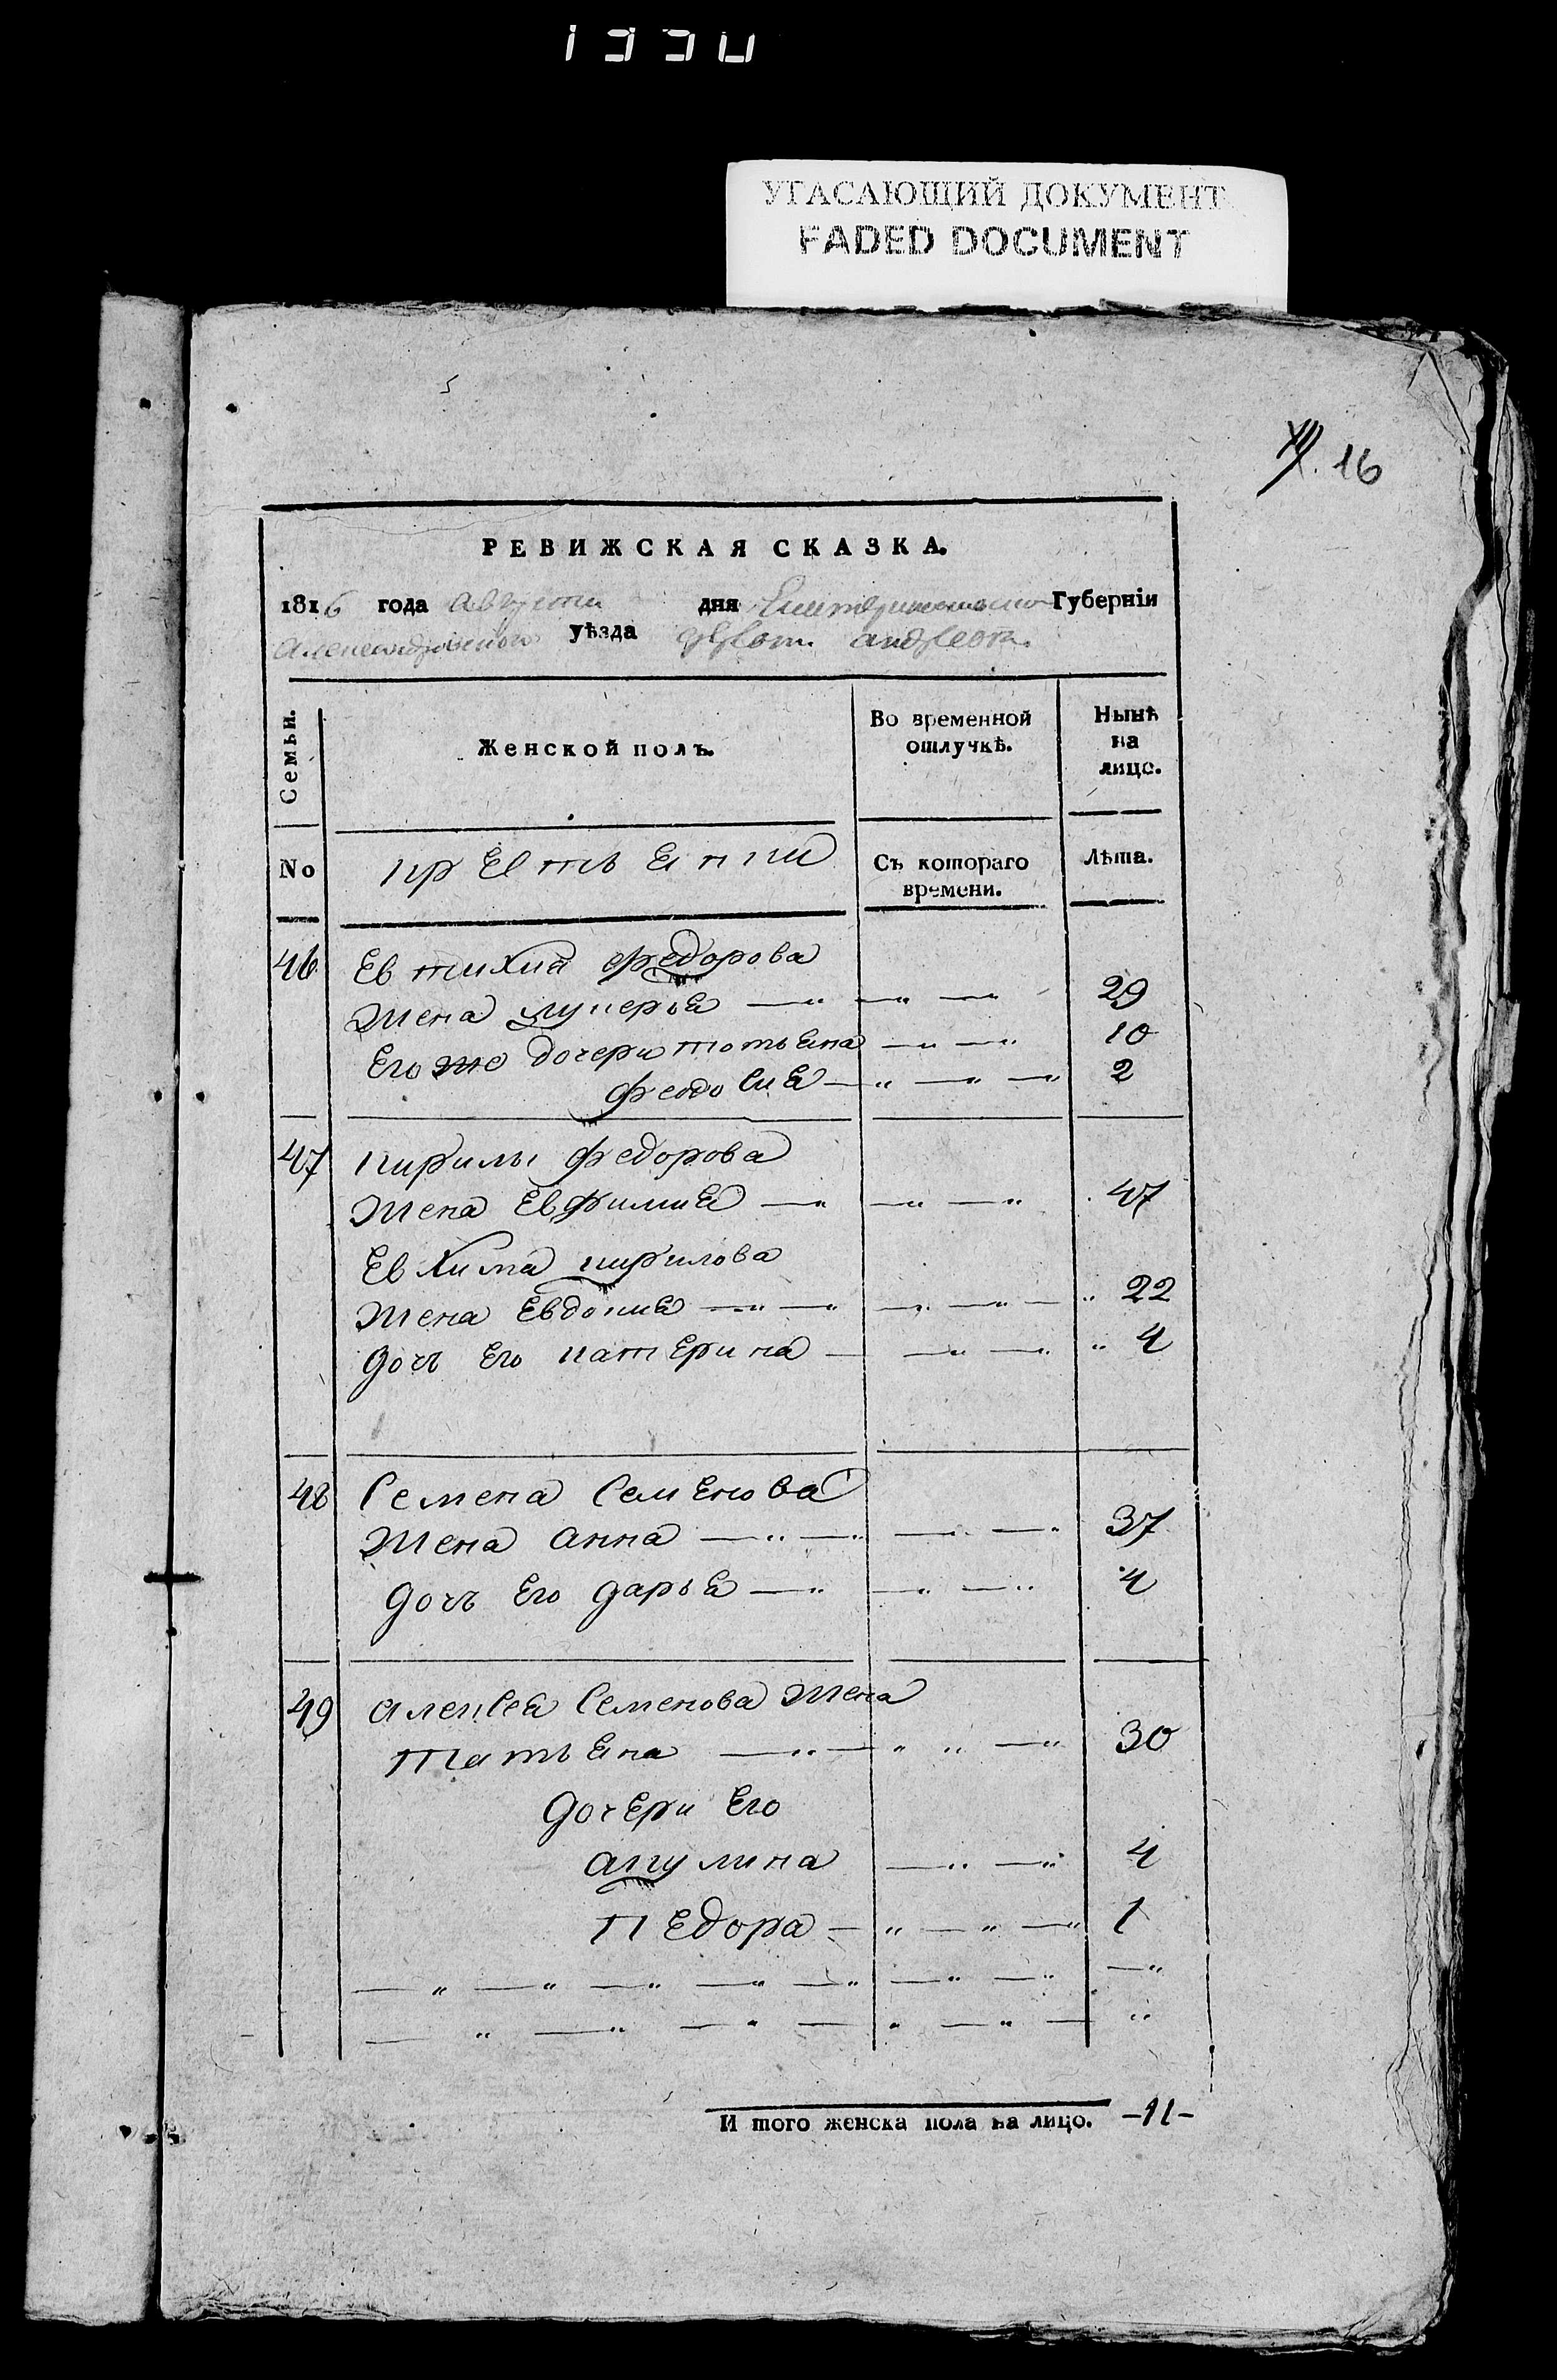 1330
УГАСАЮЩИЙ ДОКУМЕНТ
FADED DOCUMENT
16
РЕВИЖСКАЯ СКАЗКА.
1816 года августа дня Екатеринославской Губерніи
Александрійского уѣзда
Семьи. Женской полъ. Во временной отлучкѣ. Нынѣ на лицо.
No крестьянки Съ котораго времени. Лѣта.
46 Евтихия федорова
жена лукерья 29
Его же дочери татьяна 10
феодосия 2
47 кирилы федорова
жена Евфимия 47
Евхима кирилова
жена Евдокия 22
дочь Его катерина 4
48 Семена Семенова
жена анна 37
дочь Его дарья 4
49 алексея Семенова жена
татьяна 30
дочери Его
акулина 4
педора 1
И того женска пола на лицо. -11-